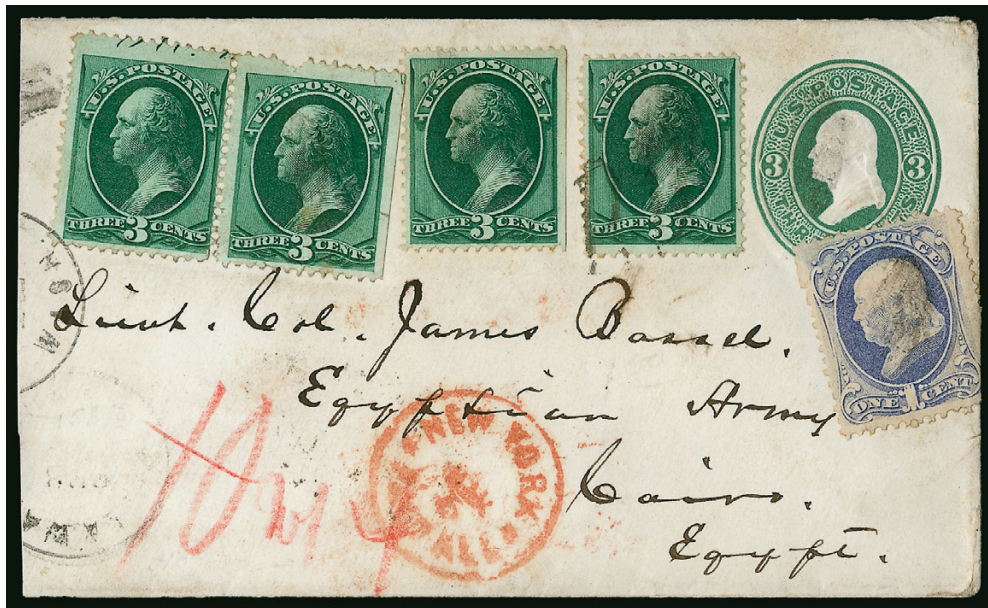 U.S. POSTAGE
THREE 3 CENTS
U.S. POSTAGE
THREE 3 CENTS
U.S. POSTAGE
THREE 3 CENTS
U.S. POSTAGE
THREE 3 CENTS
U.S. POSTAGE
3 3
U.S. POSTAGE
ONE 1 CENT
Lieut. Col. James Bassel.
Egyptian Army
Cairo.
Egypt.
NEW YORK
ALL